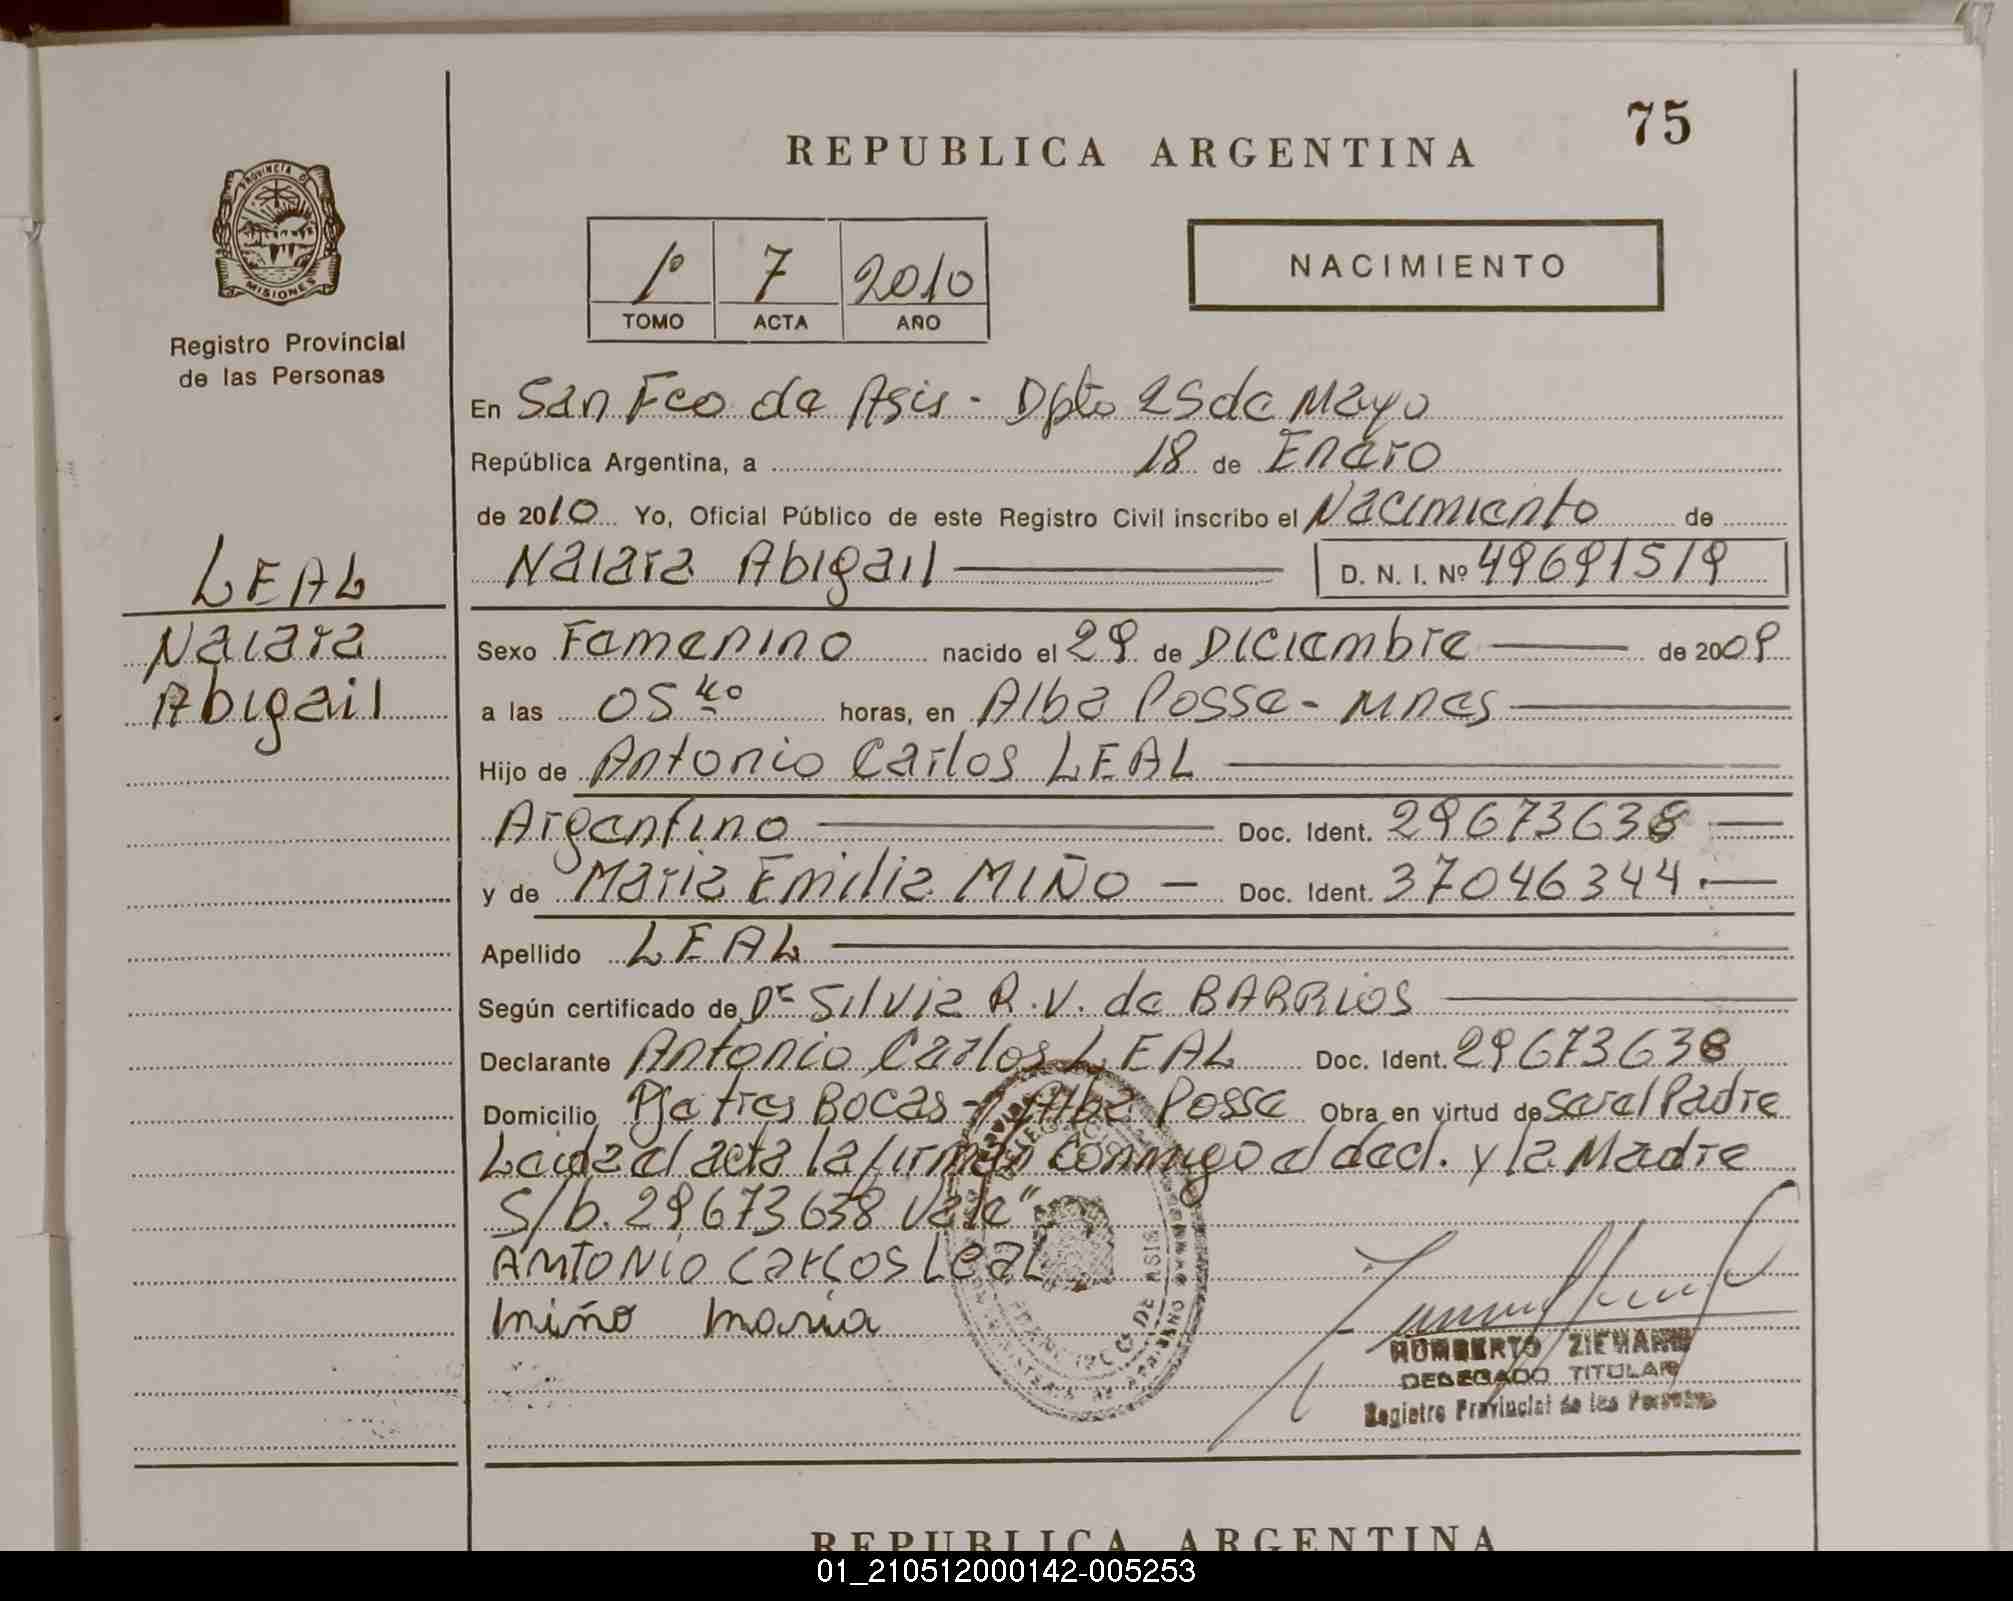 75
REPUBLICA ARGENTINA
PROVINCIA DE
MISIONES
Registro Provincial
de las Personas
1º 7 2010
TOMO ACTA AÑO
NACIMIENTO
En San Fco de Asis - Dpto 25 de Mayo
República Argentina, a 18 de Enero
de 2010 Yo, Oficial Público de este Registro Civil inscribo el Nacimiento de
Naiara Abigail D. N. I. Nº 49691519
LEAL
Naiara
Abigail
Sexo Femenino nacido el 29 de Diciembre de 2009
a las 05 40 horas, en Alba Posse - Mnes
Hijo de Antonio Carlos LEAL
Argentino Doc. Ident. 29673638
y de Maria Emilia MIÑO - Doc. Ident. 37046344.
Apellido LEAL
Según certificado de Dr Silvia R.V. de BARRIOS
Declarante Antonio Carlos LEAL Doc. Ident. 29673638
Domicilio Pje tres Bocas - Alba Posse Obra en virtud de ser el Padre
Leida el acta la firman conmigo el decl. y la Madre
S/b. 29673638 Vale"
ANTONIO CARLOS LEAL
Miño Maria
HUMBERTO
DELEGADO TITULAR
Registro Provincial de las Personas
REPUBLICA ARGENTINA
01_210512000142-005253